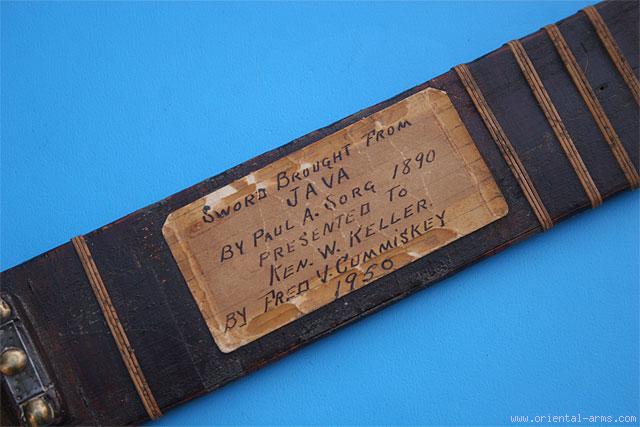 SWORD BROUGHT FROM
JAVA
BY PAUL A. SORG 1890
PRESENTED TO
KEN. W. KELLER.
BY FRED V. CUMMISKEY
1950
www.oriental-arms.com